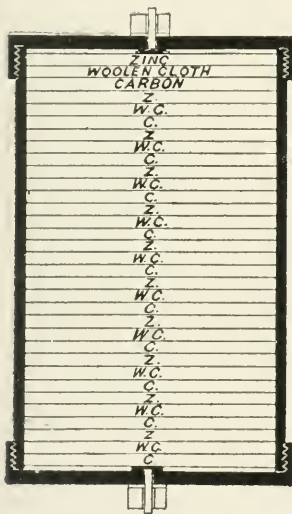 ZINC
WOOLEN CLOTH
CARBON
Z.
W.C.
C.
Z
W.C.
C.
Z.
W.C.
C.
Z.
W.C.
C.
Z.
W.C.
C.
Z.
W.C.
C.
Z.
W.C.
C.
Z.
W.C.
C.
Z.
W.C.
C.
Z
W.C.
C